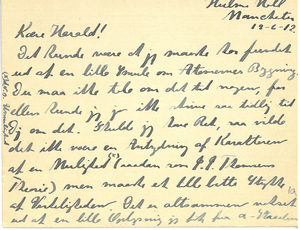 Hulme Hall
Manchester
19-6-12.
Kære Harald!
Det kunde være at jeg maaske har fundet
ud af en lille Smule om Atomernes Bygning.
Du maa ikke tale om det til nogen, for
ellers kunde jeg jo ikke skrive saa tidlig til
Dig om det. Skuld jeg have Ret, saa vilde
det ikke være en Antydning af Karakteren
af en Mulighed (som J.J. Thomsons
Theori) men maaske et lille bitte Stykke
af Virkeligheden. Det er altsammen vokset
ud af en lille Oplysning jeg fik fra